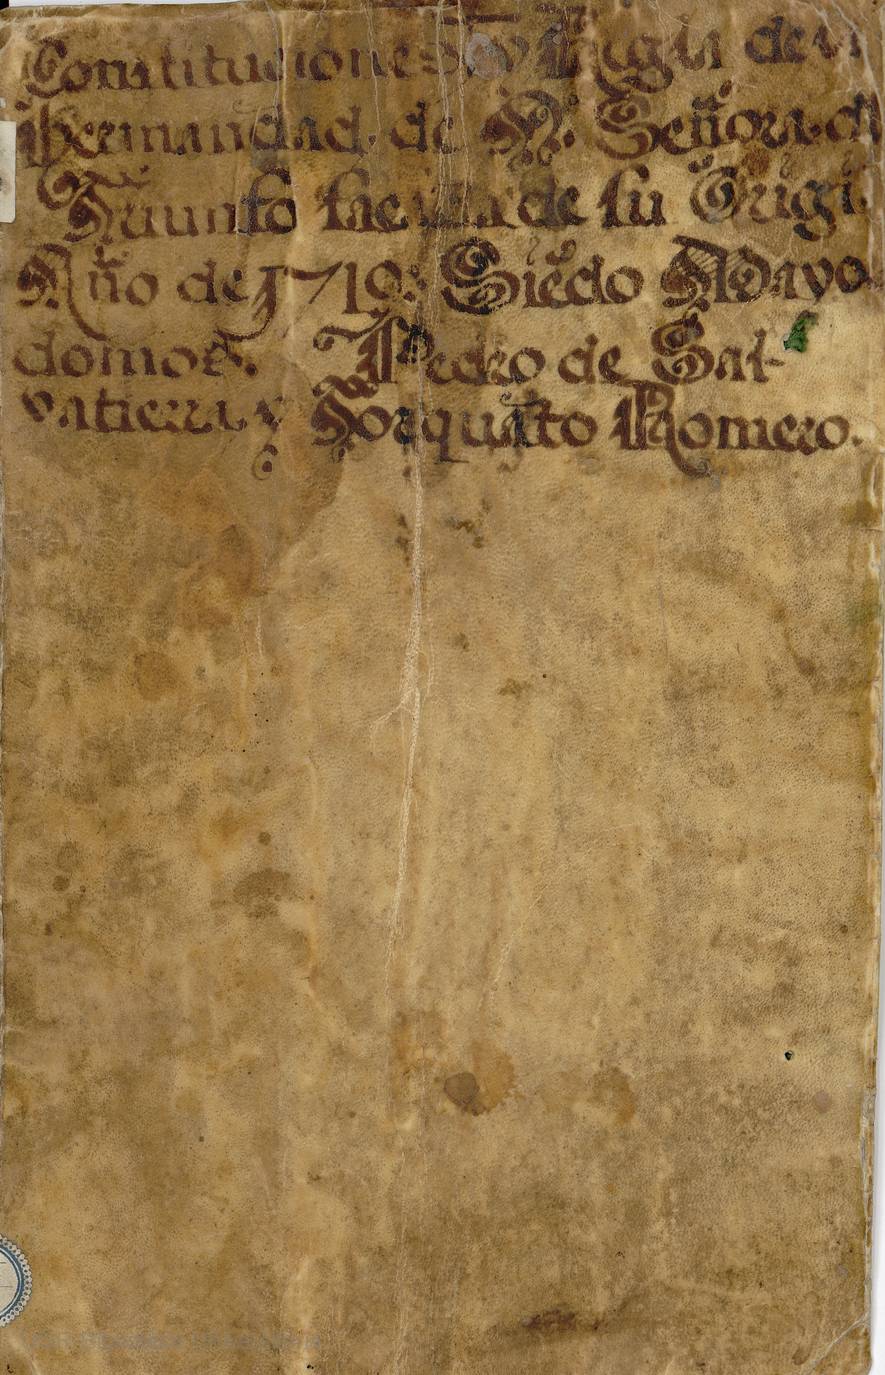 Constituciones y Regla de l
hermandad de N. Señora d
Triunfo sacada de su Origi
Año de 1719: Siēdo Mayor
domos. Pedro de Sal-
vatierra y Torquato Romero.